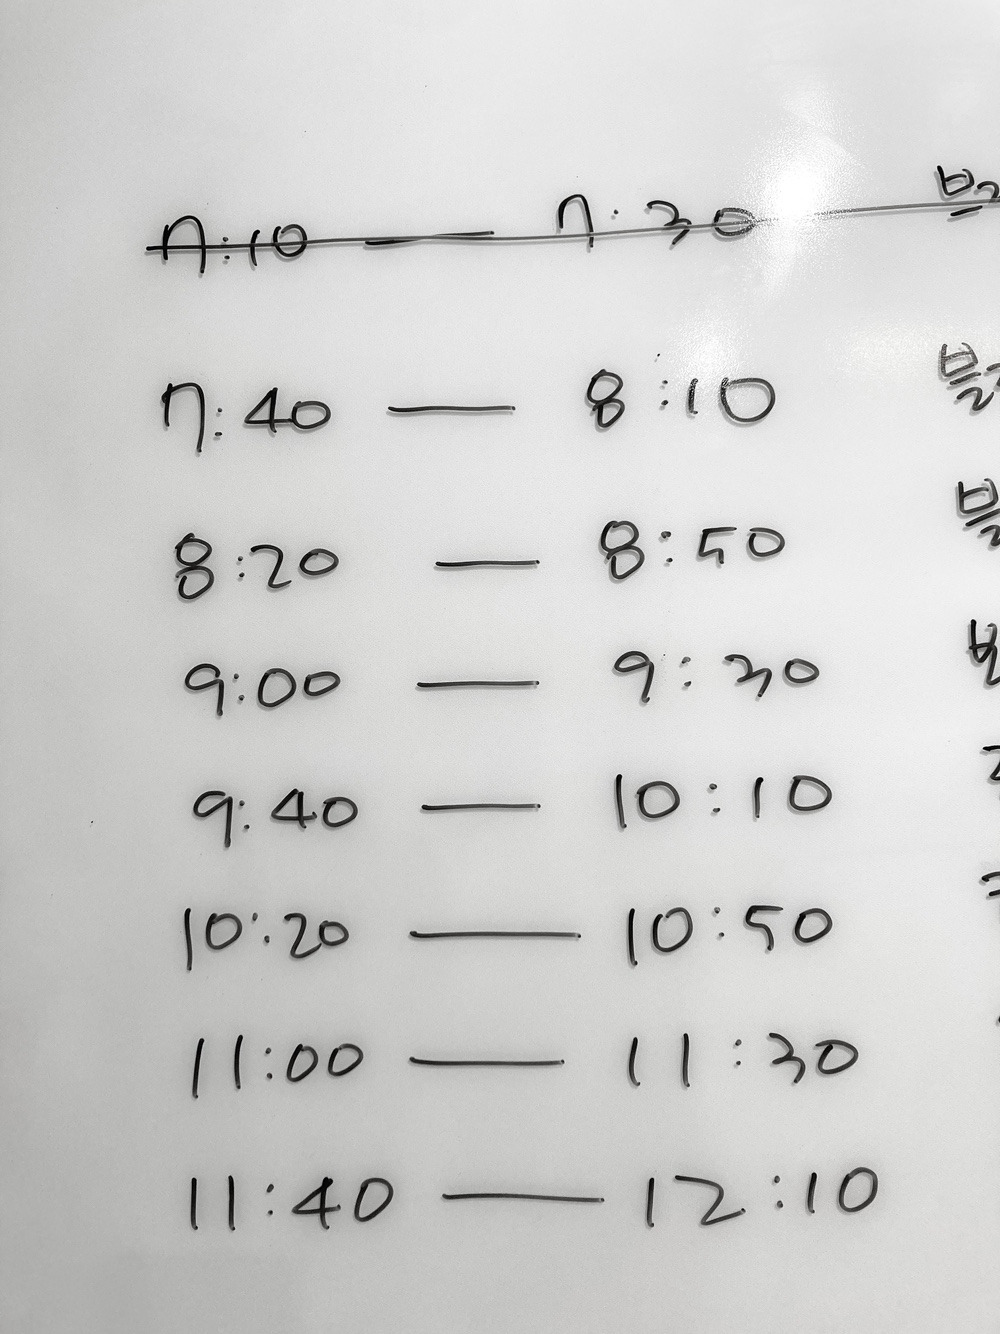 7:10 — 7:30
7:40 — 8:10
8:20 — 8:50
9:00 — 9:30
9:40 — 10:10
10:20 — 10:50
11:00 — 11:30
11:40 — 12:10